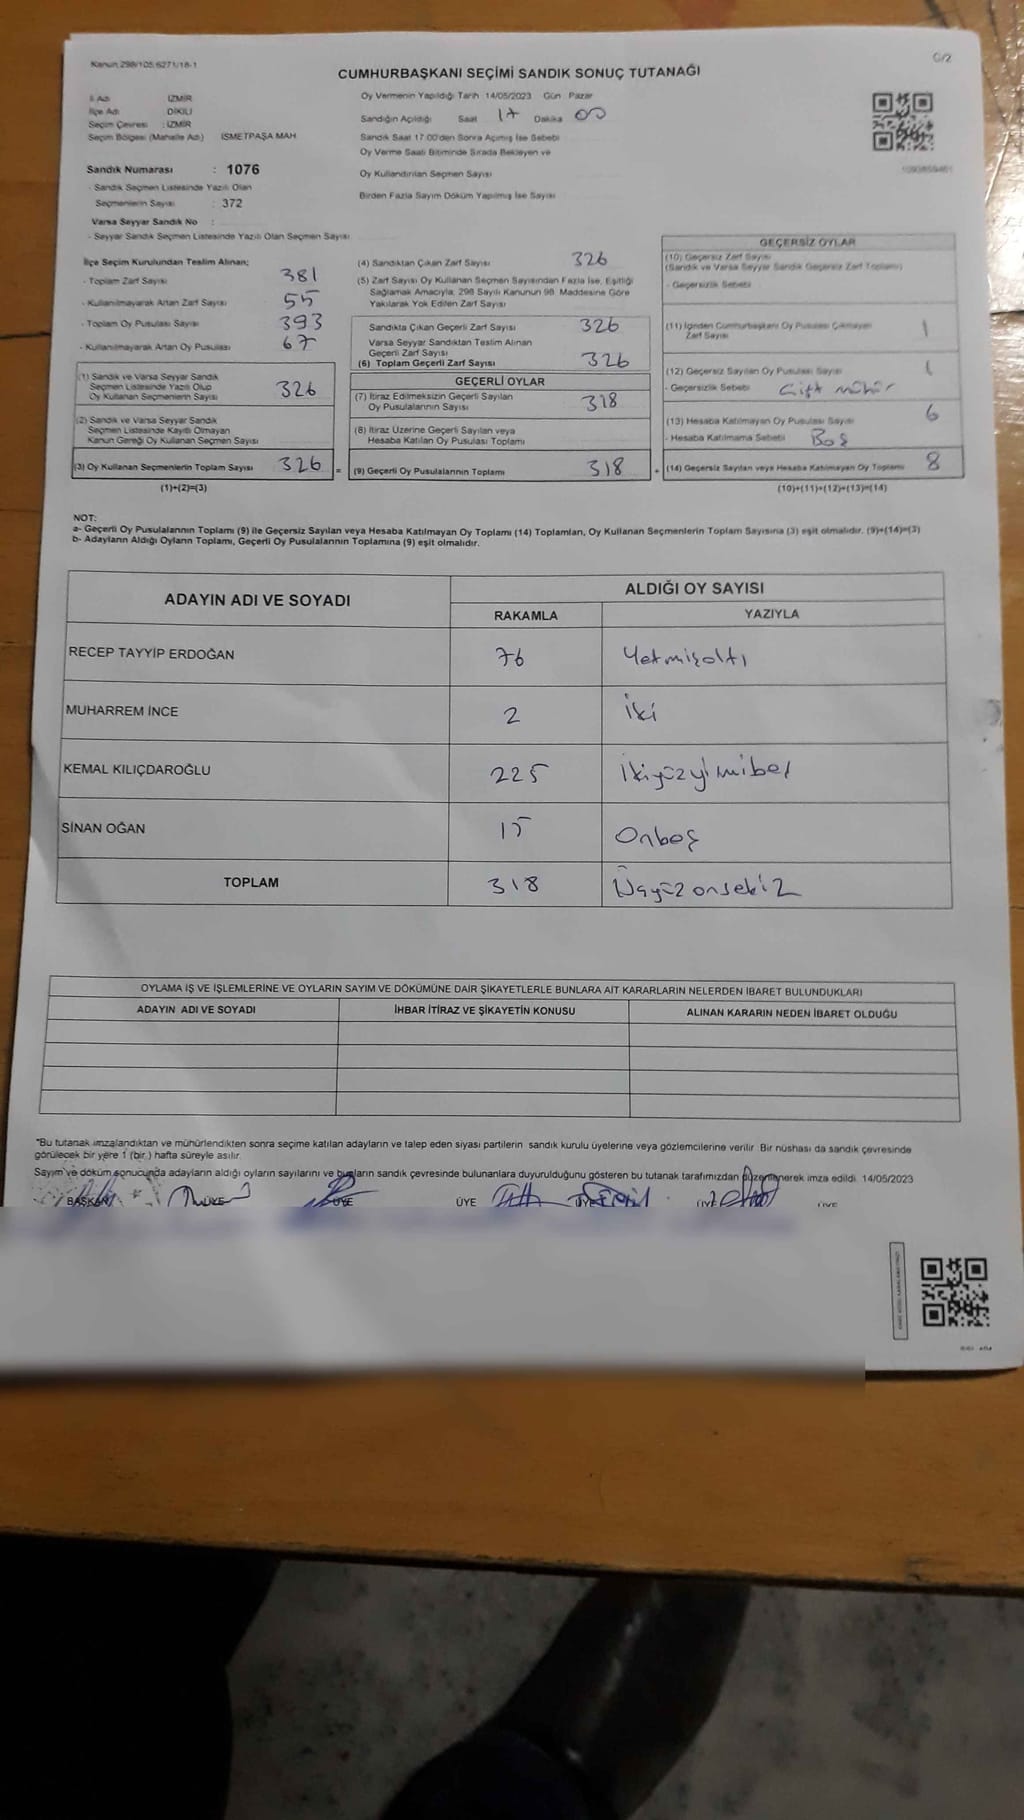 Kanun 298/105 6271/18-1
C/2
CUMHURBAŞKANI SEÇİMİ SANDIK SONUÇ TUTANAĞI
İl Adı İZMİR
İlçe Adı DİKİLİ
Seçim Çevresi : İZMİR
Seçim Bölgesi (Mahalle Adı) İSMETPAŞA MAH
Sandık Numarası : 1076
- Sandık Seçmen Listesinde Yazılı Olan
Seçmenlerin Sayısı : 372
Varsa Seyyar Sandık No :
- Seyyar Sandık Seçmen Listesinde Yazılı Olan Seçmen Sayısı
Oy Vermenin Yapıldığı Tarih 14/05/2023 Gün Pazar
Sandığın Açıldığı Saat 17 Dakika 00
Sandık Saat 17.00'den Sonra Açılmış İse Sebebi
Oy Verme Saati Bitiminde Sırada Bekleyen ve
Oy Kullandırılan Seçmen Sayısı
Birden Fazla Sayım Döküm Yapılmış İse Sayısı
İlçe Seçim Kurulundan Teslim Alınan;
- Toplam Zarf Sayısı 381
- Kullanılmayarak Artan Zarf Sayısı 55
- Toplam Oy Pusulası Sayısı 393
- Kullanılmayarak Artan Oy Pusulası 67
(1) Sandık ve Varsa Seyyar Sandık
Seçmen Listesinde Yazılı Olup
Oy Kullanan Seçmenlerin Sayısı 326
(2) Sandık ve Varsa Seyyar Sandık
Seçmen Listesinde Kayıtlı Olmayan
Kanun Gereği Oy Kullanan Seçmen Sayısı
(3) Oy Kullanan Seçmenlerin Toplam Sayısı 326 =
(1)+(2)=(3)
(4) Sandıktan Çıkan Zarf Sayısı 326
(5) Zarf Sayısı Oy Kullanan Seçmen Sayısından Fazla İse, Eşitliği
Sağlamak Amacıyla, 298 Sayılı Kanunun 98. Maddesine Göre
Yakılarak Yok Edilen Zarf Sayısı
Sandıkta Çıkan Geçerli Zarf Sayısı 326
Varsa Seyyar Sandıktan Teslim Alınan
Geçerli Zarf Sayısı
(6) Toplam Geçerli Zarf Sayısı 326
GEÇERLİ OYLAR
(7) İtiraz Edilmeksizin Geçerli Sayılan
Oy Pusulalarının Sayısı 318
(8) İtiraz Üzerine Geçerli Sayılan veya
Hesaba Katılan Oy Pusulası Toplamı
(9) Geçerli Oy Pusulalarının Toplamı 318 +
GEÇERSİZ OYLAR
(10) Geçersiz Zarf Sayısı
(Sandık ve Varsa Seyyar Sandık Geçersiz Zarf Toplamı)
- Geçersizlik Sebebi
(11) İçinden Cumhurbaşkanı Oy Pusulası Çıkmayan
Zarf Sayısı 1
(12) Geçersiz Sayılan Oy Pusulası Sayısı 1
- Geçersizlik Sebebi Çift mühür
(13) Hesaba Katılmayan Oy Pusulası Sayısı 6
- Hesaba Katılmama Sebebi Boş
(14) Geçersiz Sayılan veya Hesaba Katılmayan Oy Toplamı 8
(10)+(11)+(12)+(13)=(14)
NOT:
a- Geçerli Oy Pusulalarının Toplamı (9) ile Geçersiz Sayılan veya Hesaba Katılmayan Oy Toplamı (14) Toplamları, Oy Kullanan Seçmenlerin Toplam Sayısına (3) eşit olmalıdır. (9)+(14)=(3)
b- Adayların Aldığı Oyların Toplamı, Geçerli Oy Pusulalarının Toplamına (9) eşit olmalıdır.
ADAYIN ADI VE SOYADI ALDIĞI OY SAYISI
RAKAMLA YAZIYLA
RECEP TAYYİP ERDOĞAN 76 Yetmişaltı
MUHARREM İNCE 2 İki
KEMAL KILIÇDAROĞLU 225 İkiyüzyimibeş
SİNAN OĞAN 15 Onbeş
TOPLAM 318 Üçyüzonsekiz
OYLAMA İŞ VE İŞLEMLERİNE VE OYLARIN SAYIM VE DÖKÜMÜNE DAİR ŞİKAYETLERLE BUNLARA AİT KARARLARIN NELERDEN İBARET BULUNDUKLARI
ADAYIN ADI VE SOYADI İHBAR İTİRAZ VE ŞİKAYETİN KONUSU ALINAN KARARIN NEDEN İBARET OLDUĞU
*Bu tutanak imzalandıktan ve mühürlendikten sonra seçime katılan adayların ve talep eden siyasi partilerin sandık kurulu üyelerine veya gözlemcilerine verilir. Bir nüshası da sandık çevresinde
görülecek bir yere 1 (bir) hafta süreyle asılır.
Sayım ve döküm sonucunda adayların aldığı oyların sayılarını ve bunların sandık çevresinde bulunanlara duyurulduğunu gösteren bu tutanak tarafımızdan düzenlenerek imza edildi. 14/05/2023
BAŞKAN ÜYE ÜYE ÜYE ÜYE ÜYE ÜYE